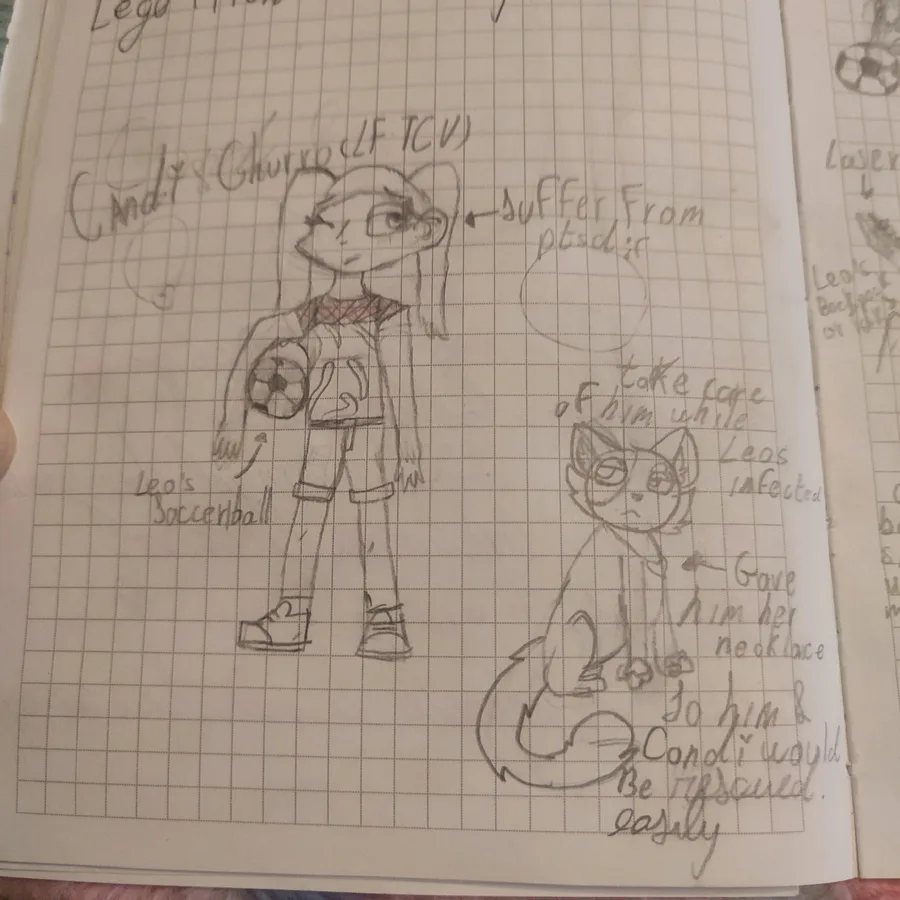 Lego
Candi Churro (LF TCV)
Suffer From
ptsd
take care
of him while
Leos
infected
Leo's
Soccerball
Gave
him her
necklace
So him &
Candi would
Be rescued.
easily
Laser
Leo's
or